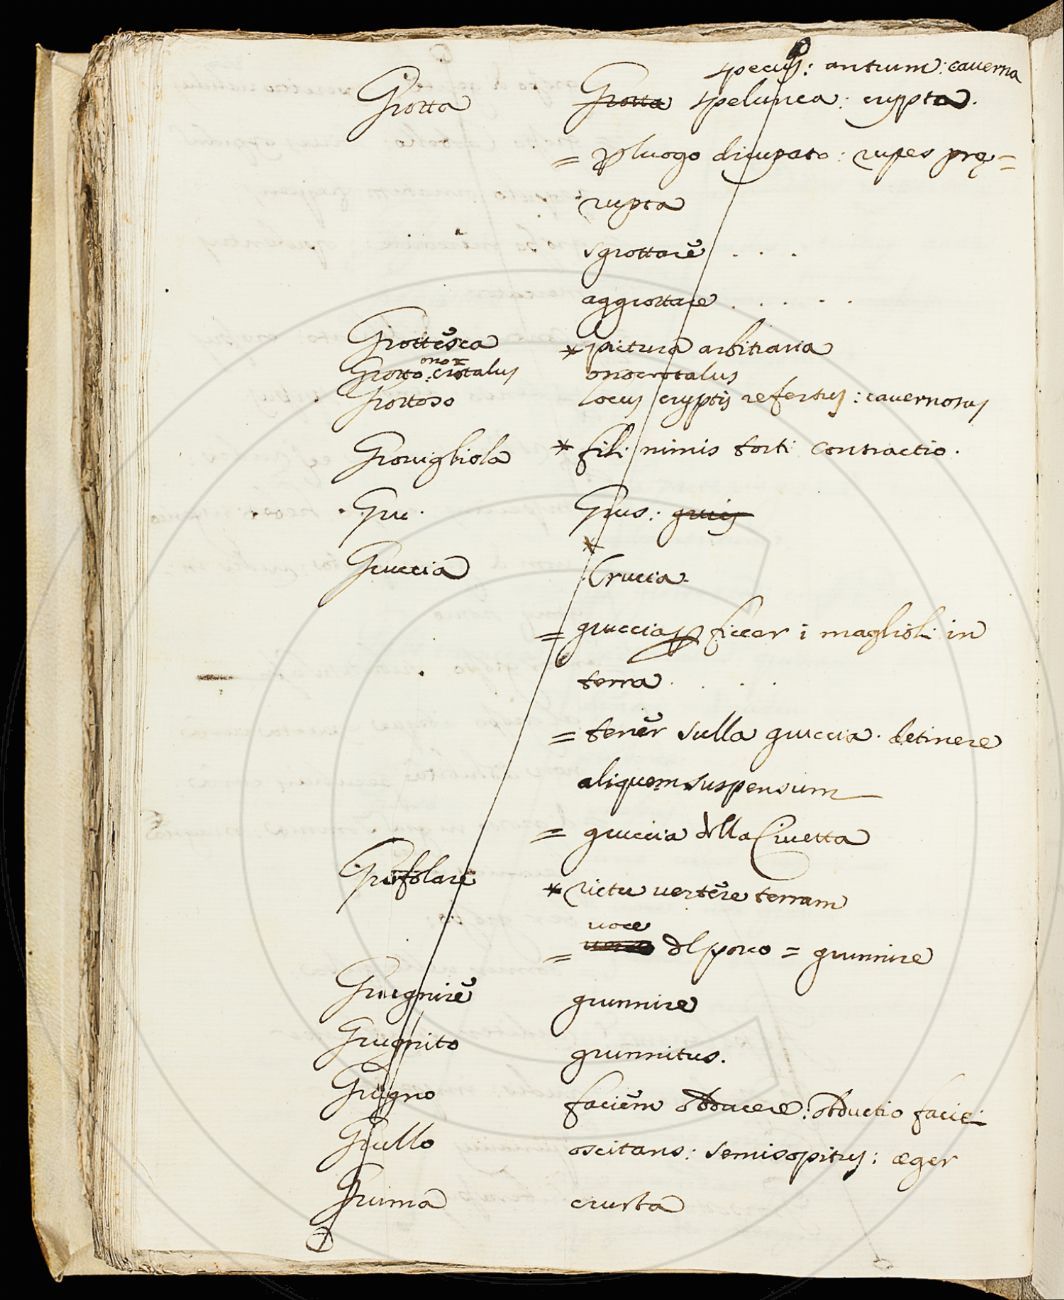 specus: antrum: caverna
Grotta Grotta spelunca: crypta.
= luogo dirupato: rupes prę=
rupta
sgrottare . . .
aggrottare . . . . .
Grottesca * pictura arbitraria
Grotto: crotalus onocrotalus
Grottoso locus cryptis refertus: cavernosus
Grovigliola * fili nimis torti contractio.
Gru. Grus: gruis
Gruccia * Crucia.
= gruccia ficcar i maglioli in
terra . . . .
= tener sulla gruccia. detinere
aliquem suspensum
= gruccia dlla Civetta
Grufolare * rictu vertere terram
voce
= dl porco = grunnire
Grugnire grunnire
Grugnito grunnitus.
Grugno faciem obducere: obductio faciei
Grullo oscitans: semisopitus: æger
Gruma crusta